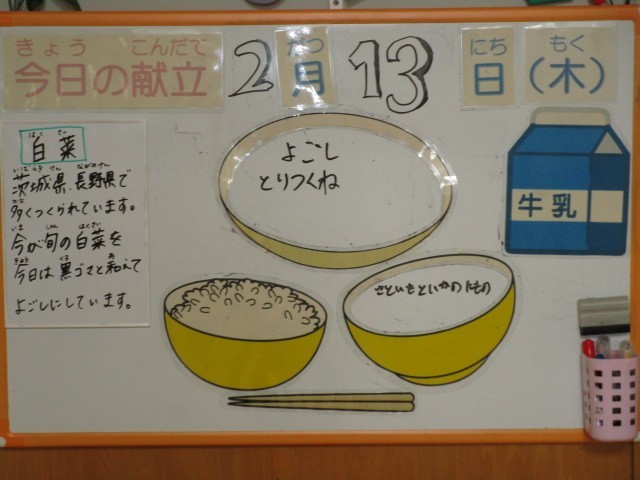 きょう こんだて がつ にち もく
今日の献立 2月13日(木)
はく さい
白菜
いばらき けん ながのけん
茨城県、長野県で
おお
多くつくられています。
いま しゅん はくさい
今が旬の白菜を
きょう くろ あ
今日は黒ゴマと和えて
よごしにしています。
よごし
とりつくね
牛乳
さといもといかのにもの